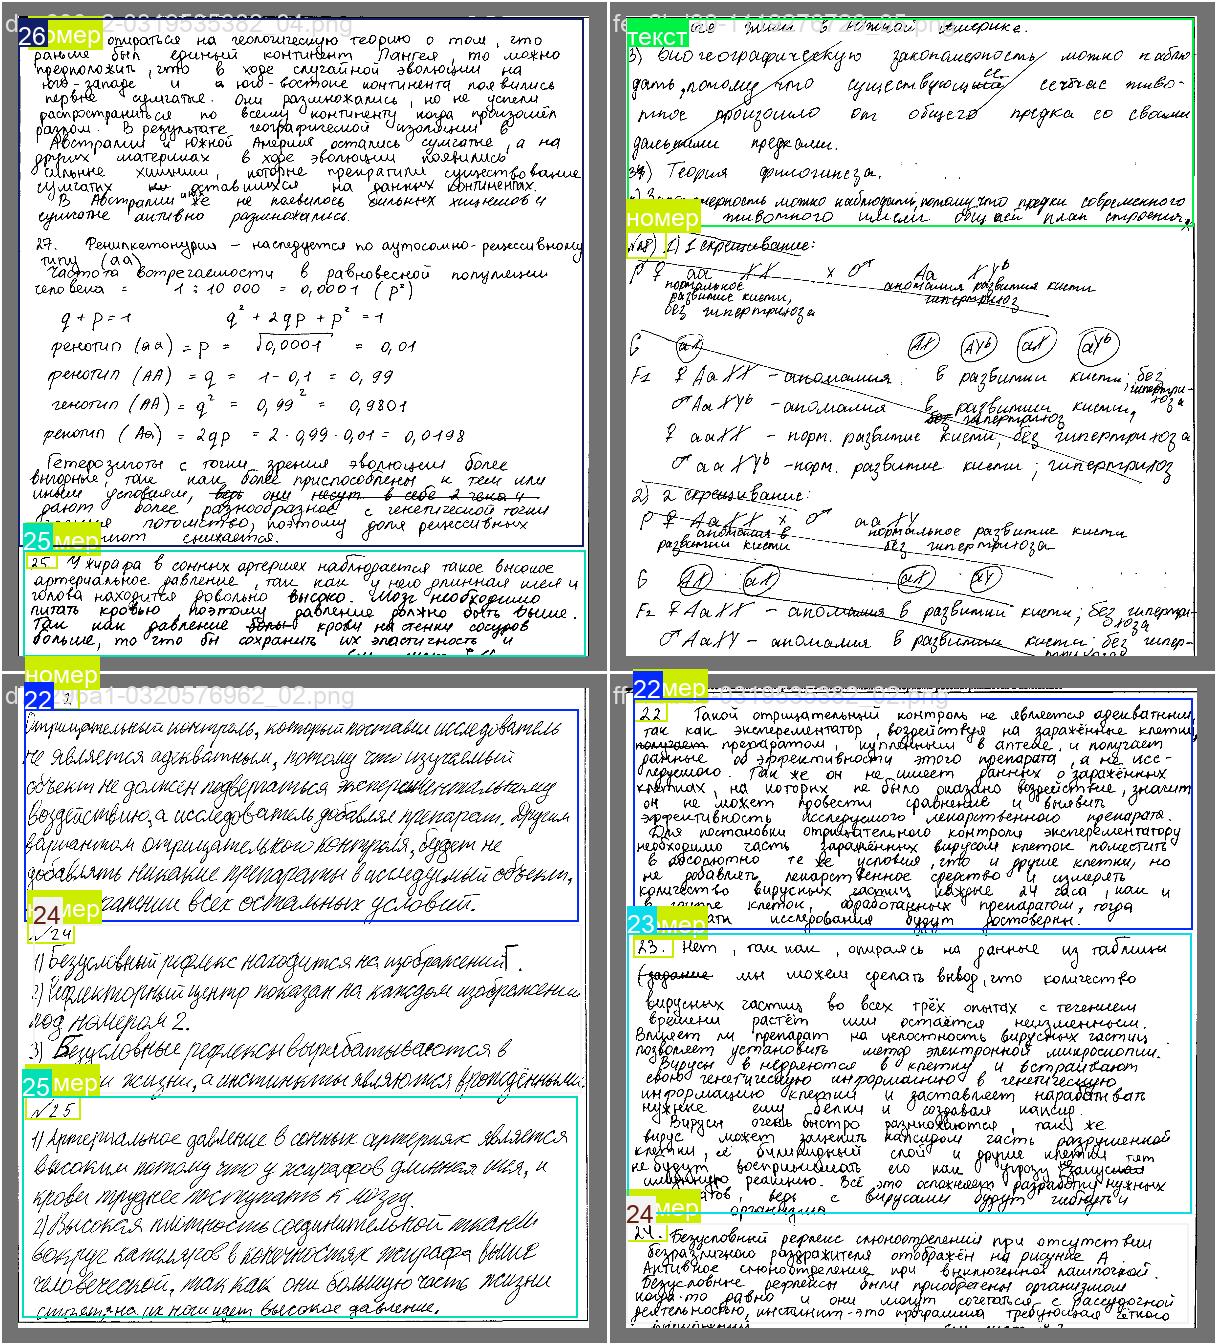 26
номер
опираться на геологическую теорию о том, что
раньше был единый континент Пангея, то можно
предположить, что в ходе случайной эволюции на
юго-западе и юго-востоке континента появились
первые сумчатые. Они размножались, но не успели
распространиться по всему континенту когда произошёл
разлом. В результате географической изоляции в
Австралии и Южной Америке остались сумчатые, а на
других материках в ходе эволюции появились
сильные хищники, которые прекратили существование
сумчатых не оставшихся на данных континентах.
В Австралии же не появилось сильных хищников и
сумчатые активно размножались.
27. Фенилкетонурия - наследуется по аутосомно-рецессивному
типу (аа)
Частота встречаемости в равновесной популяции
человека = 1:10 000 = 0,0001 (p²)
q + p = 1 q² + 2qp + p² = 1
фенотип (аа) = p = √0,0001 = 0,01
фенотип (АА) = q = 1 - 0,1 = 0,99
генотип (АА) = q² = 0,99² = 0,9801
фенотип (Аа) = 2qp = 2·0,99·0,01 = 0,0198
Гетерозиготы с точки зрения эволюции более
выгодные, так как более приспособлены к тем или
иным условиям, ведь они несут в себе 2 гена и
дают более разнообразное с генетической точки
зрения потомство, поэтому доля рецессивных
снижается.
25 мер
25. У жирафа в сонных артериях наблюдается такое высокое
артериальное давление, так как у него длинная шея и
голова находится довольно высоко. Мозг необходимо
питать кровью, поэтому давление должно быть выше.
Так как давление крови на стенки сосудов
больше, то что бы сохранить их эластичность и
текст
в Южной Америке.
3) Биогеографическую закономерность можно наблю-
дать, потому что существующие сейчас живо-
тное произошло от общего предка со своими
дальними предками.
3) Теория филогинеза.
закономерность можно наблюдать, потому что предки современного
животного имели общий план строения
номер
№28) 1) 1 скрещивание:
P ♀ аа XX x ♂ Аа XYᵇ
нормальное развитие кисти, без гипертрихоза
аномалия развития кисти гипертрихоз
G аX АX АYᵇ аX аYᵇ
F₁ ♀ АаXX - аномалия в развитии кисти; без гипертрихоза
♂ АаXYᵇ - аномалия в развитии кисти, гипертрихоз
♀ ааXX - норм. развитие кисти, без гипертрихоза
♂ ааXYᵇ - норм. развитие кисти; гипертрихоз
2) 2 скрещивание:
P ♀ АаXX x ♂ ааXY
аномалия в развитии кисти
нормальное развитие кисти без гипертрихоза
G АX аX аX аY
F₂ ♀ АаXX - аномалия в развитии кисти; без гипертри-
хоза
♂ АаXY - аномалия в развитии кисти без гипер-
номер
22
Отрицательный контроль, который поставил исследователь
не является адекватным, потому что изучаемый
объект не должен подвергаться экспериментальному
воздействию, а исследователь добавлял препарат. Другим
вариантом отрицательного контроля, будет не
добавлять никакие препараты в исследуемый объект,
всех остальных условий.
24 мер
№24
1) Безусловный рефлекс находится на изображений Г.
2) Рефлекторный центр показан на каждом изображении
под номером 2.
3) Безусловные рефлексы вырабатываются в
жизни, а инстинкты являются врождёнными.
25 мер
№25
1) Артериальное давление в сонных артериях является
высоким потому что у жирафов длинная шея, и
крови труднее поступать к мозгу.
2) Высокая плотность соединительной ткани
вокруг капилляров в конечностях жирафа выше
человеческой, так как они большую часть жизни
на их ноги идёт высокое давление.
22 мер
22 Такой отрицательный контроль не является адекватным,
так как эксперементатор, воздействуя на заражённые клетки,
препаратом, купленным в аптеке, и получает
данные об эффективности этого препарата, а не исс-
ледуемого. Так же он не имеет данных о заражённых
клетках, на которых не было оказано воздействие, значит
он не может провести сравнение и выявить
эффективность исследуемого лекарственного препарата.
Для постановки отрицательного контроля эксперементатору
необходимо часть заражённых вирусом клеток поместить
в абсолютно те же условия, что и другие клетки, но
не добавлять лекарственное средство и измерять
количество вирусных частиц каждые 24 часа, как и
в группе клеток, обработанных препаратом, тогда
исследования будут достоверны.
23 мер
23. Нет, так как, опираясь на данные из таблицы
(задание мы можем сделать вывод, что количество
вирусных частиц во всех трёх опытах с течением
времени растёт или остаётся неизменным.
Влияет ли препарат на целостность вирусных частиц
позволяет установить метод электронной микроскопии.
Вирусы внедряются в клетку и встраивают
свою генетическую информацию в генетическую
информацию клетки и заставляет нарабатывать
нужные ему белки и создавая капсид.
Вирусы очень быстро размножаются, так же
вирус может зацепить капсидом часть разрушенной
клетки, её билипидный слой и другие клетки
не будут воспринимать его как угрозу
иммунную реакцию. Всё это осложняет разработку нужных
ведь с вирусами будут гибнуть и
организма
24 мер
24. Безусловный рефлекс слюноотделения при отсутствии
безразличного раздражителя отображён на рисунке А
Активное слюноотделение при включённой лампочкой.
Безусловные рефлексы были приобретены организмом
когда-то давно и они могут сочетаться с рассудочной
деятельностью, инстинкт-это программа требующая чёткого